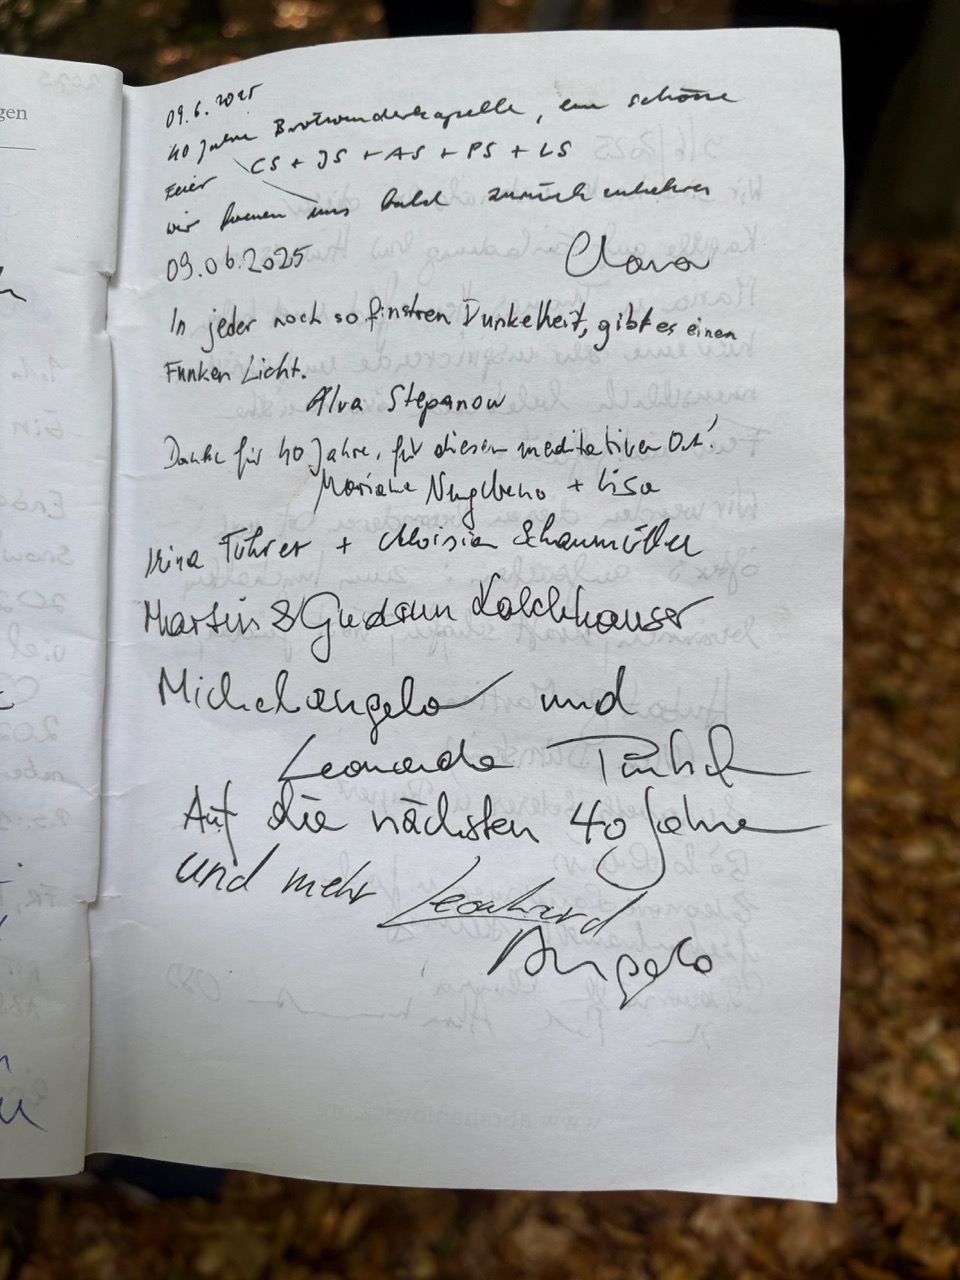 gen
09.6.2025
40 Jahre Brotwunderkapelle, eine schöne
CS + JS + AS + PS + LS
Feier
wir freuen uns bald zurückzukehren
09.06.2025
Clara
In jeder noch so finstren Dunkelheit, gibt es einen
Funken Licht.
Alva Stepanow
Danke für 40 Jahre, für diesen meditativen Ort!
+ Lisa
Irina Führer + Aloisia
Martin & Gudrun
Michelangelo und
Leonardo
Auf die nächsten 40 Jahre
und mehr Leonhard
Angelo